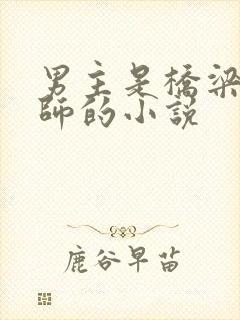 男主是橋梁
師的小説
鹿谷早苗